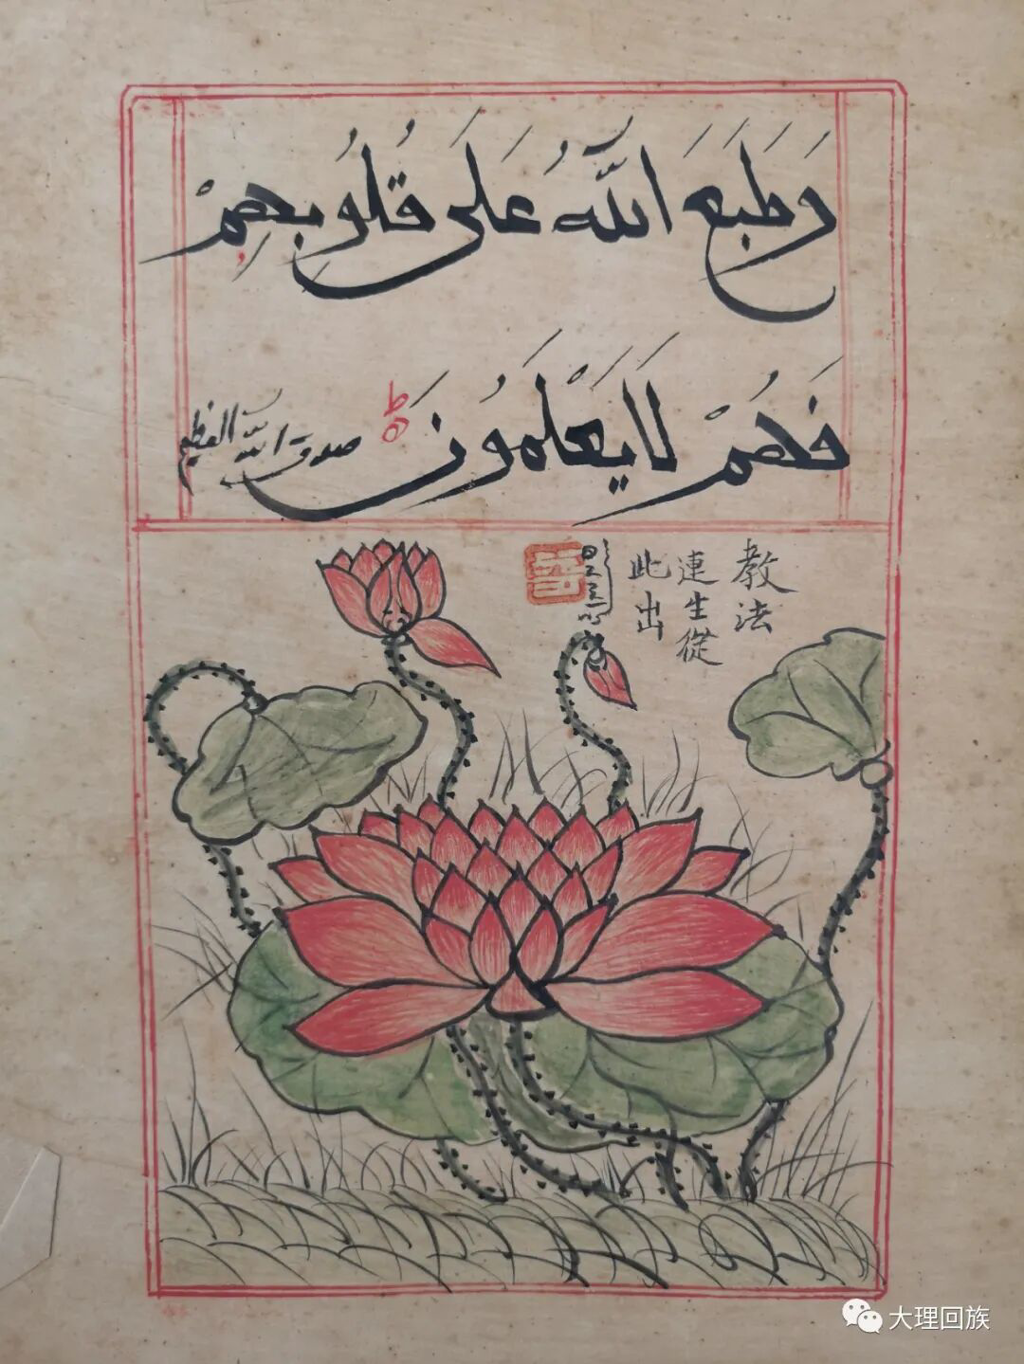 وَطَبَعَ اللَّهُ عَلَى قُلُوبِهِمْ
فَهُمْ لَا يَعْلَمُونَ ط
صدق الله العظيم
教法
連生從
此出
大理回族